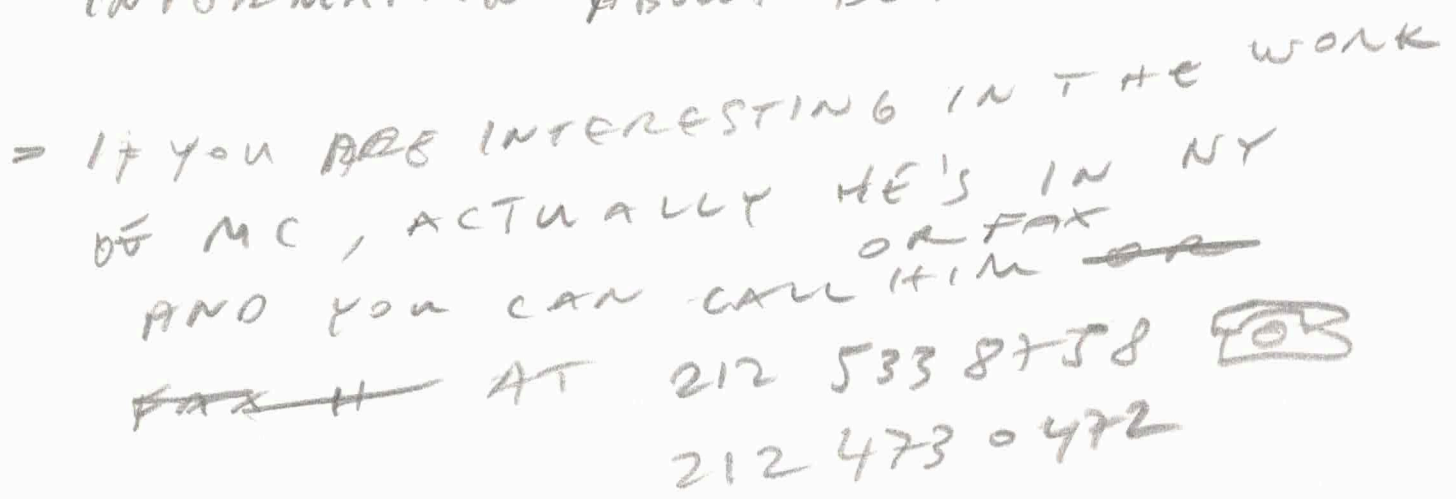 INFORMATION ABOUT
= If you ARE INTERESTING IN THE WORK
OF MC, ACTUALLY HE'S IN NY
OR FAX
AND YOU CAN CALL HIM OR
FAX H AT 212 533 8758
212 473 0472